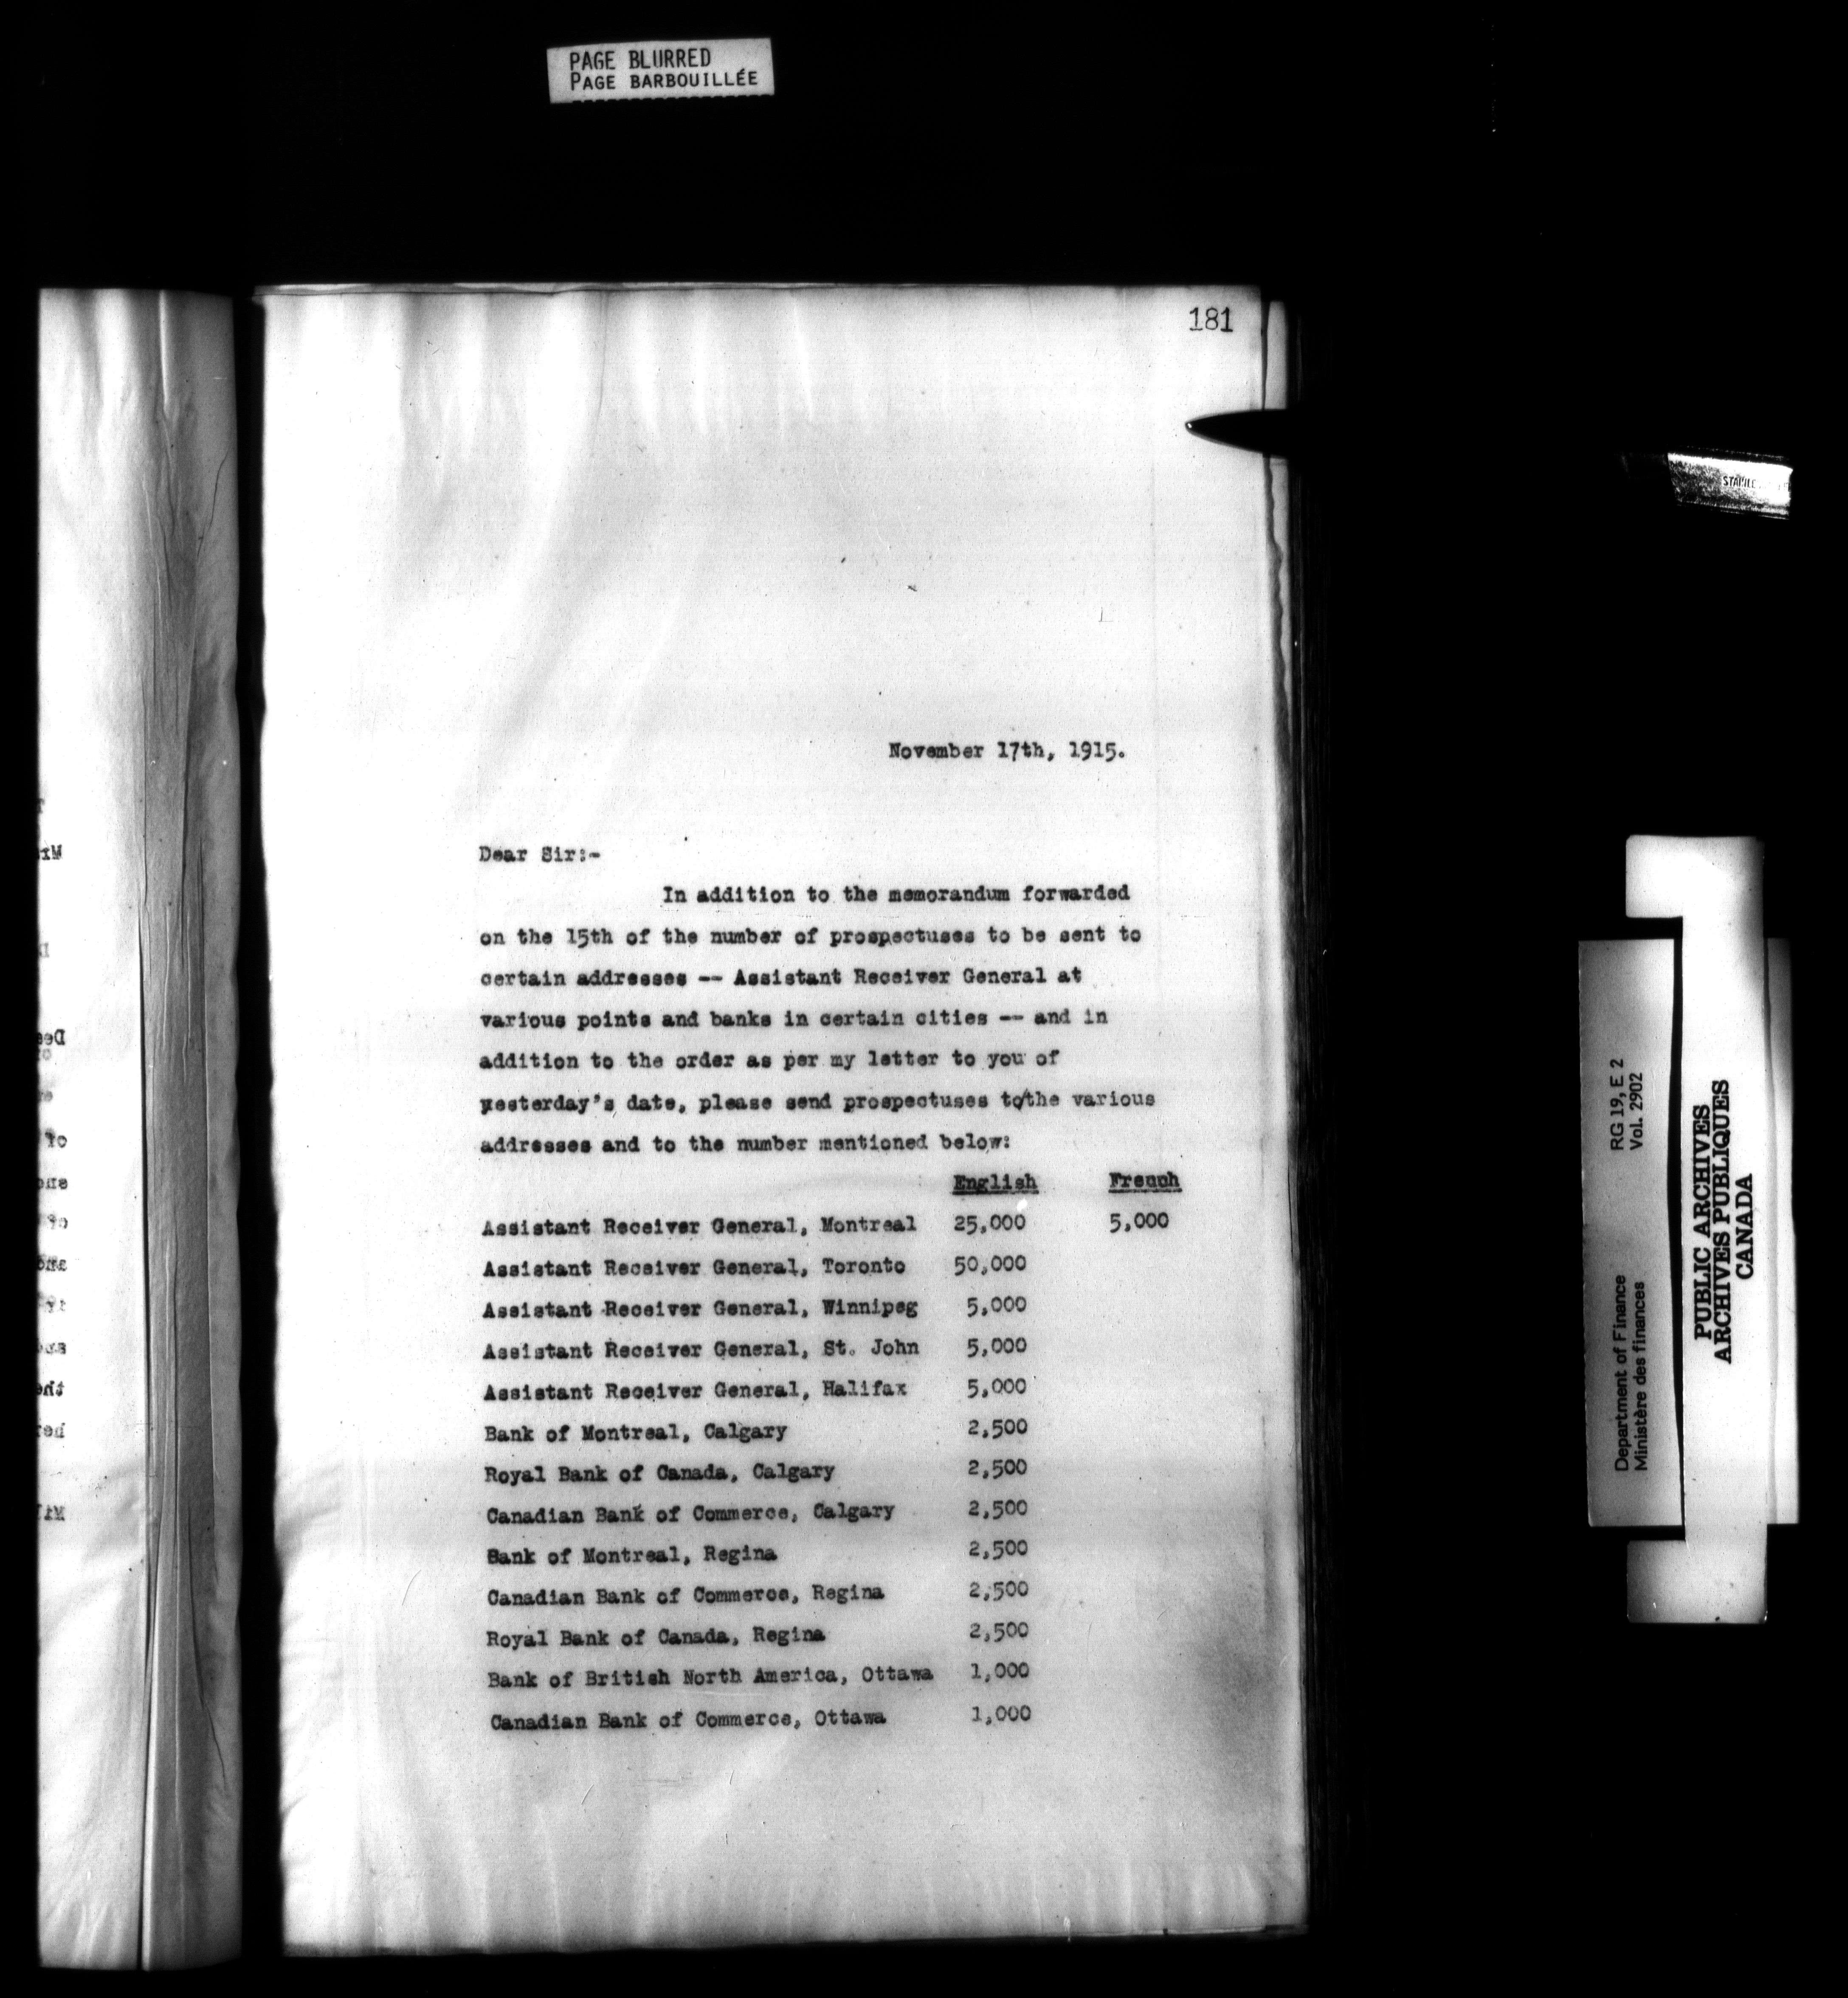 PAGE BLURRED
PAGE BARBOUILLÉE
181
November 17th, 1915.
Dear Sir:-
In addition to the memorandum forwarded
on the 15th of the number of prospectuses to be sent to
certain addresses -- Assistant Receiver General at
various points and banks in certain cities -- and in
addition to the order as per my letter to you of
yesterday's date, please send prospectuses to/the various
addresses and to the number mentioned below:
English French
Assistant Receiver General, Montreal 25,000 5,000
Assistant Receiver General, Toronto 50,000
Assistant Receiver General, Winnipeg 5,000
Assistant Receiver General, St. John 5,000
Assistant Receiver General, Halifax 5,000
Bank of Montreal, Calgary 2,500
Royal Bank of Canada, Calgary 2,500
Canadian Bank of Commerce, Calgary 2,500
Bank of Montreal, Regina 2,500
Canadian Bank of Commerce, Regina 2,500
Royal Bank of Canada, Regina 2,500
Bank of British North America, Ottawa 1,000
Canadian Bank of Commerce, Ottawa 1,000
Department of Finance RG 19, E 2
Ministère des finances Vol. 2902
PUBLIC ARCHIVES
ARCHIVES PUBLIQUES
CANADA